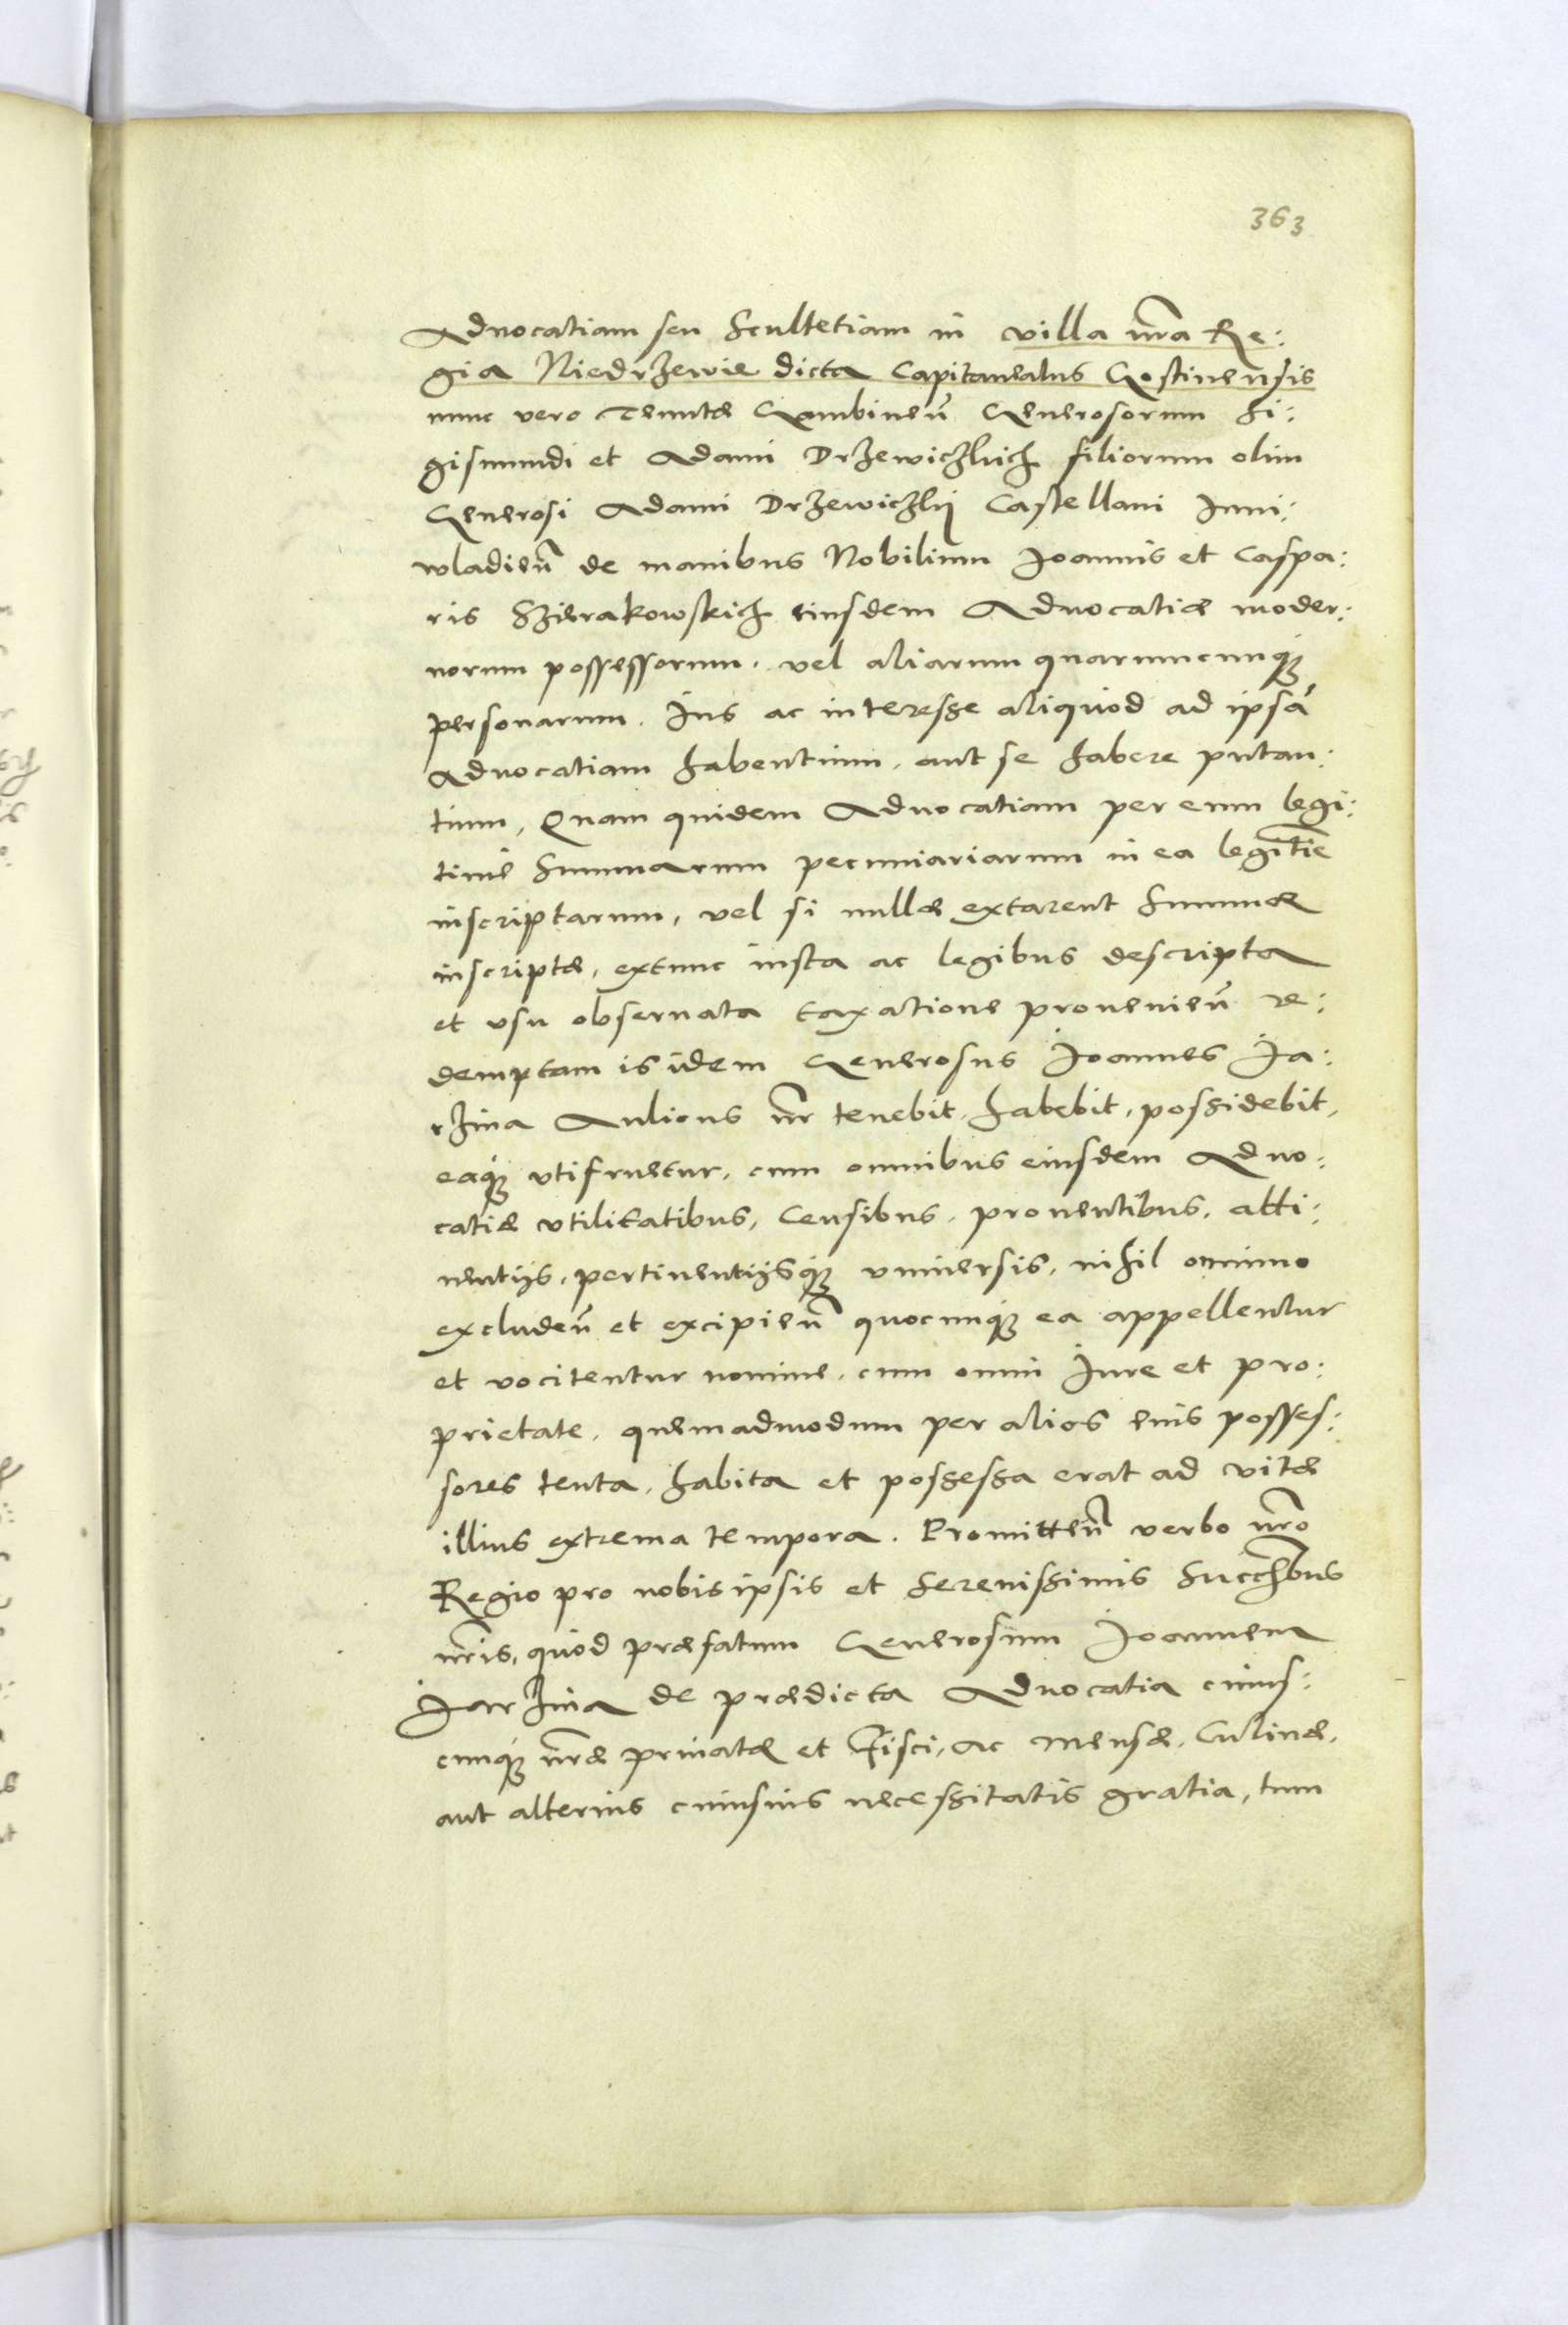 363
Advocatiam seu Scultetiam in villa nr̃a Re:
gia Niedrzewie dicta Capitaneatus Gostinensis
nunc vero Tenutæ Gombineñ Generosorum Si:
gismundi et Adami Drzewiczkich filiorum olim
Generosi Adami Drzewiczkij Castellani Inni:
wladieñ de manibus Nobilium Joannis et Caspa:
ris Szierakowskich eiusdem Advocatiæ moder:
norum possessorum. vel aliarum quarumcunq́ꝫ
personarum. Ius ac interesse aliquod ad ipsã
Aduocatiam habentium. aut se habere putan:
tium, Quam quidem Aduocatiam per eum legi:
timè Summarum pecuniariarum in ea legitĩe
inscriptarum, vel si nullæ extarent Summæ
inscriptæ, extunc iusta ac legibus descripta
et vsu obseruata taxatione prouenieñ re:
demptam is idem Generosus Joannes Ja:
rzina Aulicus nr̃ tenebit, habebit, possidebit,
eaq́ꝫ vtifruetur, cum omnibus eiusdem Aduo:
catiæ vtilitatibus, Censibus, prouentibus, atti:
nentijs, pertinentijsq́ꝫ vniuersis, nihil omnino
excludeñ et excipieñ quocunq́ꝫ ea appellentur
et vocitentur nomine, cum omni Iure et pro:
prietate, quemadmodum per alios eius posses:
sores tenta, habita et possessa erat ad vitæ
illius extrema tempora. Promitteñ verbo nr̃o
Regio pro nobis ipsis et Serenissimis Succr̃ibus
nr̃is, quòd præfatum Generosum Joannem
Jarzina de prædicta Aduocatia cuius:
cunq́ꝫ nr̃æ priuatæ et Fisci, ac Mensæ, Culinæ,
aut alterius cuiusuis necessitatis gratia, tum